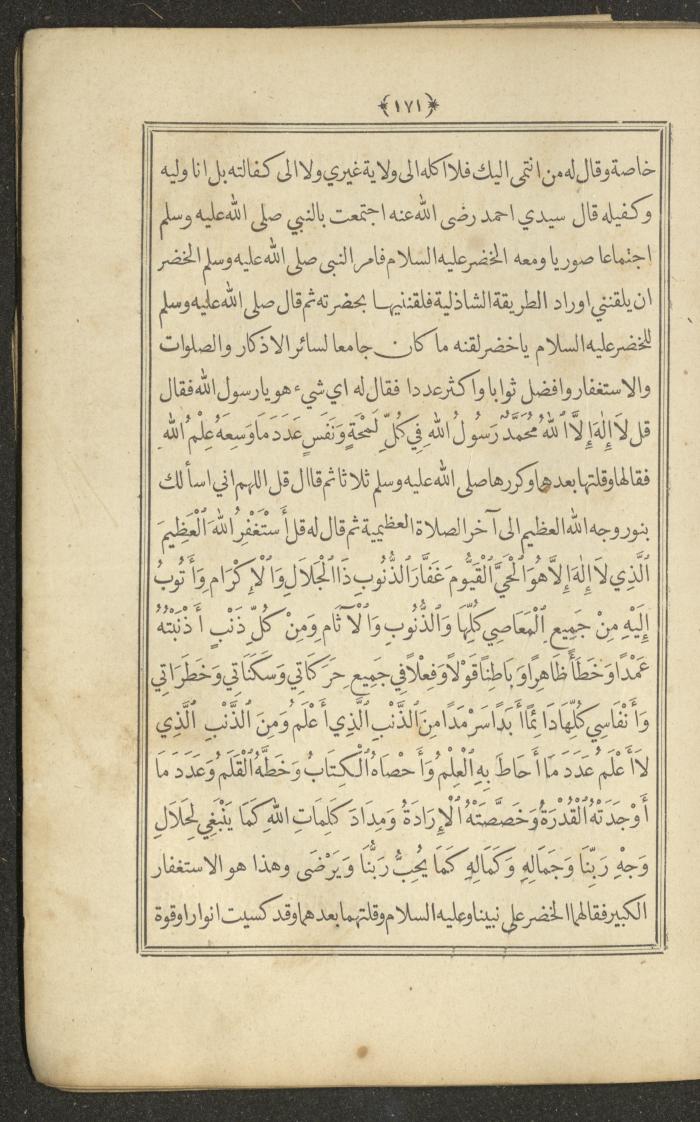 ﴿١٧١﴾
خاصة وقال له من انتمى اليك فلا اكله الى ولاية غيري ولا الى كفالته بل انا وليه
وكفيله قال سيدي احمد رضى الله عنه اجتمعت بالنبي صلى الله عليه وسلم
اجتماعا صوريا ومعه الخضر عليه السلام فامر النبى صلى الله عليه وسلم الخضر
ان يلقنني اوراد الطريقة الشاذلية فلقننيها بحضرته ثم قال صلى الله عليه وسلم
للخضر عليه السلام ياخضر لقنه ما كان جامعا لسائر الاذكار والصلوات
والاستغفار وافضل ثوابا واكثر عددا فقال له اي شيء هو يارسول الله فقال
قل لَا إِلٰهَ إِلَّا ٱللهُ مُحَمَّدٌ رَسُولُ ٱللهِ فِي كُلِّ لَمْحَةٍ وَنَفَسٍ عَدَدَ مَا وَسِعَهُ عِلْمُ ٱللهِ
فقالها وقلتها بعدهما وكررها صلى الله عليه وسلم ثلاثا ثم قال قل اللهم اني اسألك
بنور وجه الله العظيم الى آخر الصلاة العظيمية ثم قال له قل أَسْتَغْفِرُ ٱللهَ ٱلْعَظِيمَ
ٱلَّذِي لَا إِلٰهَ إِلَّا هُوَ ٱلْحَيَّ ٱلْقَيُّومَ غَفَّارَ ٱلذُّنُوبِ ذَا ٱلْجَلَالِ وَٱلْإِكْرَامِ وَأَتُوبُ
إِلَيْهِ مِنْ جَمِيعِ ٱلْمَعَاصِي كُلِّهَا وَٱلذُّنُوبِ وَٱلْآثَامِ وَمِنْ كُلِّ ذَنْبٍ أَذْنَبْتُهُ
عَمْدًا وَخَطَأً ظَاهِرًا وَبَاطِنًا قَوْلًا وَفِعْلًا فِي جَمِيعِ حَرَكَاتِي وَسَكَنَاتِي وَخَطَرَاتِي
وَأَنْفَاسِي كُلِّهَا دَائِمًا أَبَدًا سَرْمَدًا مِنَ ٱلذَّنْبِ ٱلَّذِي أَعْلَمُ وَمِنَ ٱلذَّنْبِ ٱلَّذِي
لَا أَعْلَمُ عَدَدَ مَا أَحَاطَ بِهِ ٱلْعِلْمُ وَأَحْصَاهُ ٱلْكِتَابُ وَخَطَّهُ ٱلْقَلَمُ وَعَدَدَ مَا
أَوْجَدَتْهُ ٱلْقُدْرَةُ وَخَصَّصَتْهُ ٱلْإِرَادَةُ وَمِدَادَ كَلِمَاتِ ٱللهِ كَمَا يَنْبَغِي لِجَلَالِ
وَجْهِ رَبِّنَا وَجَمَالِهِ وَكَمَالِهِ كَمَا يُحِبُّ رَبُّنَا وَيَرْضَى وهذا هو الاستغفار
الكبير فقالهما الخضر على نبينا وعليه السلام وقلتهما بعدهما وقد كسيت انوارا وقوة